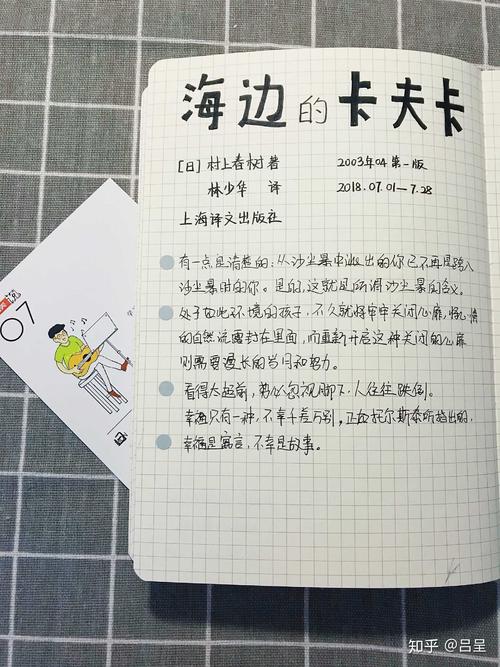 海边的卡夫卡
[日] 村上春树 著 2003年04第一版
林少华 译 2018.07.01—7.28
上海译文出版社
有一点是清楚的:从沙尘暴中逃出的你已不再是踏入
沙尘暴时的你。是的,这就是所谓沙尘暴的含义。
处于如此环境的孩子,不久就将牢牢关闭心扉,将心情
的自然流露封在里面,而重新开启这种关闭的心扉
则需要漫长的时间和努力。
看得太超前,势必忽视脚下,人往往跌倒。
幸福只有一种,不幸千差万别。正如托尔斯泰所指出的,
幸福是寓言,不幸是故事。
07
知乎 @吕呈